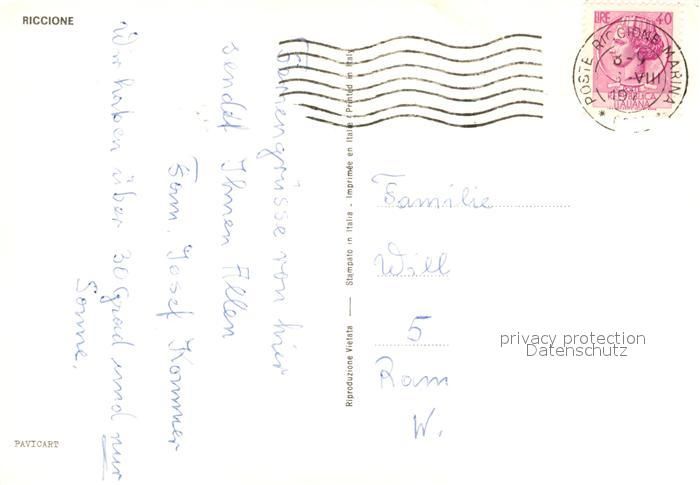 RICCIONE
LIRE 40
POSTE RICCIONE MARINA
8-9
VIII
REPUBBLICA
ITALIANA
Feriengrüsse von hier
sendet Ihnen Allen
Fam. Josef Kommer
Wir haben über 30 Grad und nur
Sonne.
Riproduzione Vietata — Stampato in Italia - Imprimée en Italie - Printed in Italy
Familie
Will
5
Ram
W.
privacy protection
Datenschutz
PAVICART